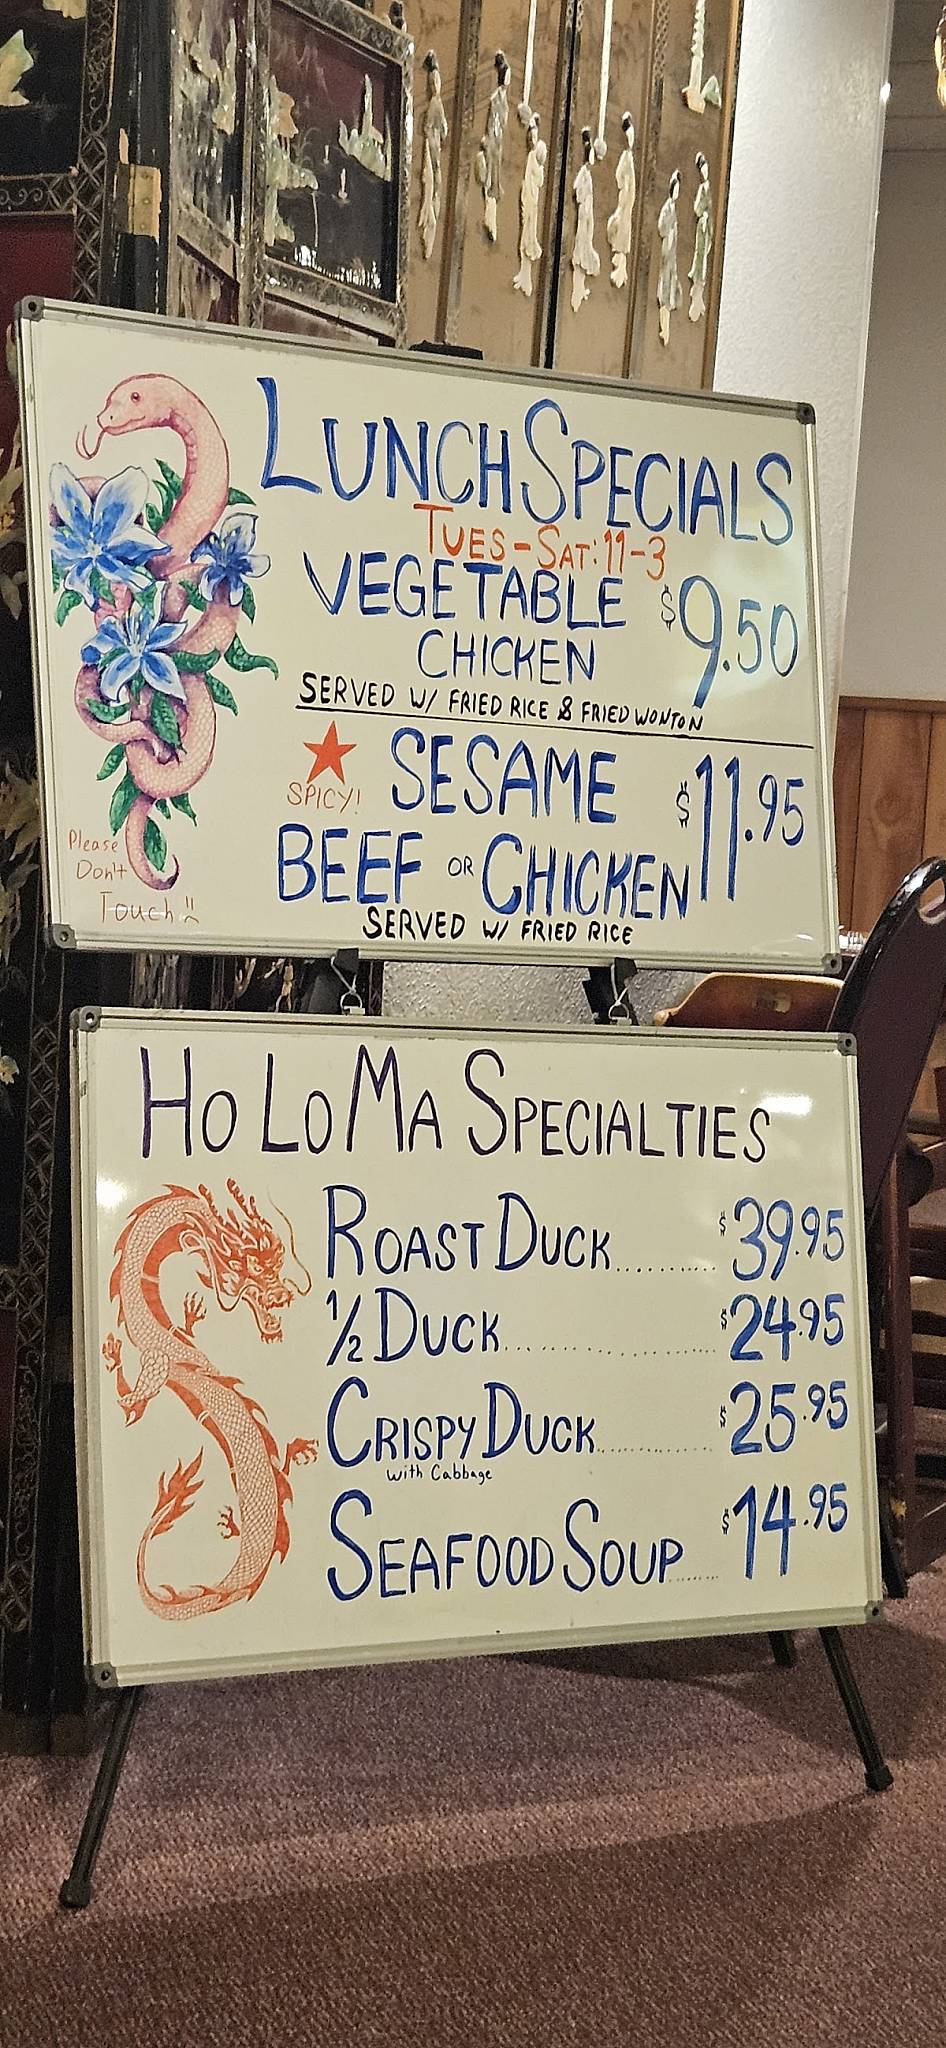 LUNCH SPECIALS
TUES-SAT: 11-3
VEGETABLE $9.50
CHICKEN
SERVED W/ FRIED RICE & FRIED WONTON
SPICY! SESAME $11.95
BEEF OR CHICKEN
SERVED W/ FRIED RICE
Please
Don't
Touch
HO LO MA SPECIALTIES
ROAST DUCK.......... $39.95
1/2 DUCK................... $24.95
CRISPY DUCK.............. $25.95
with Cabbage
SEAFOOD SOUP....... $14.95